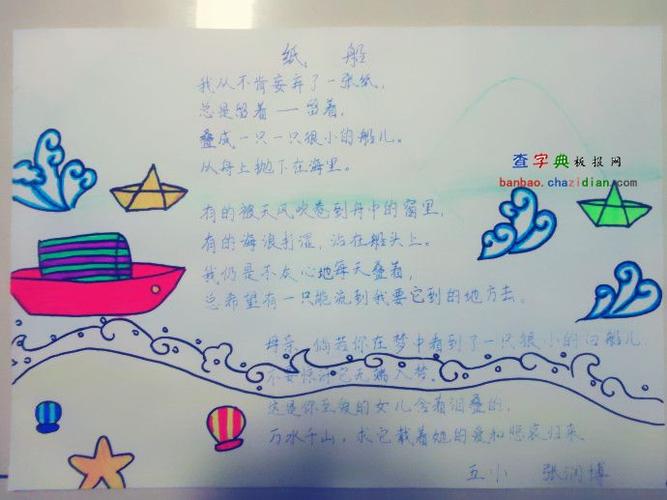 纸 船
我从不肯妄弃了一张纸，
总是留着——留着，
叠成一只一只很小的船儿。
从舟上抛下在海里。
查字典板报网
banbao.chazidian.com
有的被天风吹卷到舟中的窗里，
有的海浪打湿，沾在船头上。
我仍是不灰心地每天叠着，
总希望有一只能流到我要它到的地方去。
母亲，倘若你在梦中看到了一只很小的白船儿，
不要惊讶它无端入梦。
这是你至爱的女儿含着泪叠的，
万水千山，求它载着她的爱和悲哀归来。
五小 张润博